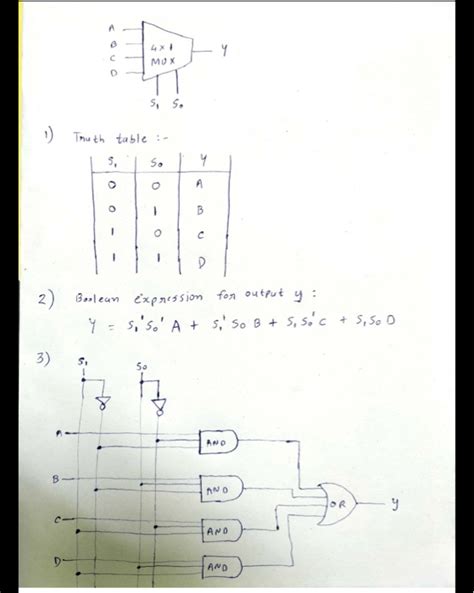 A
B
C
D
4x1
MUX
Y
S₁ S₀
1) Truth table :-
S₁ S₀ Y
0 0 A
0 1 B
1 0 C
1 1 D
2) Boolean expression for output y :
Y = S₁'S₀' A + S₁' S₀ B + S₁ S₀' C + S₁ S₀ D
3)
S₁ S₀
A AND
B AND
OR Y
C AND
D AND